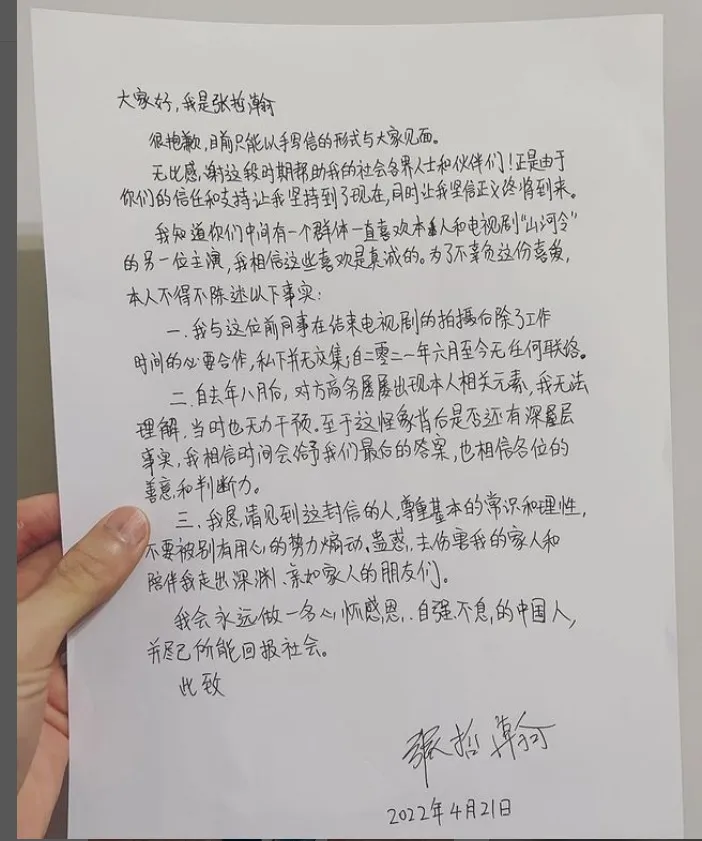 大家好,我是张哲瀚
很抱歉,目前只能以手写信的形式与大家见面。
无比感谢这段时期帮助我的社会各界人士和伙伴们!正是由于
你们的信任和支持让我坚持到了现在,同时让我坚信正义终将到来。
我知道你们中间有一个群体一直喜欢本人和电视剧“山河令”
的另一位主演,我相信这些喜欢是真诚的。为了不辜负这份喜爱,
本人不得不陈述以下事实:
一.我与这位前同事在结束电视剧的拍摄后除了工作
时间的必要合作,私下并无交集;自二零二一年六月至今无任何联络。
二.自去年八月后,对方商务屡屡出现本人相关元素,我无法
理解,当时也无力干预。至于这怪象背后是否还有深层
事实,我相信时间会给予我们最后的答案,也相信各位的
善意和判断力。
三.我恳请见到这封信的人,尊重基本的常识和理性,
不要被别有用心的势力煽动、蛊惑,去伤害我的家人和
陪伴我走出深渊、亲如家人的朋友们。
我会永远做一名心怀感恩、自强不息的中国人,
并尽己所能回报社会。
此致
张哲瀚
2022年4月21日